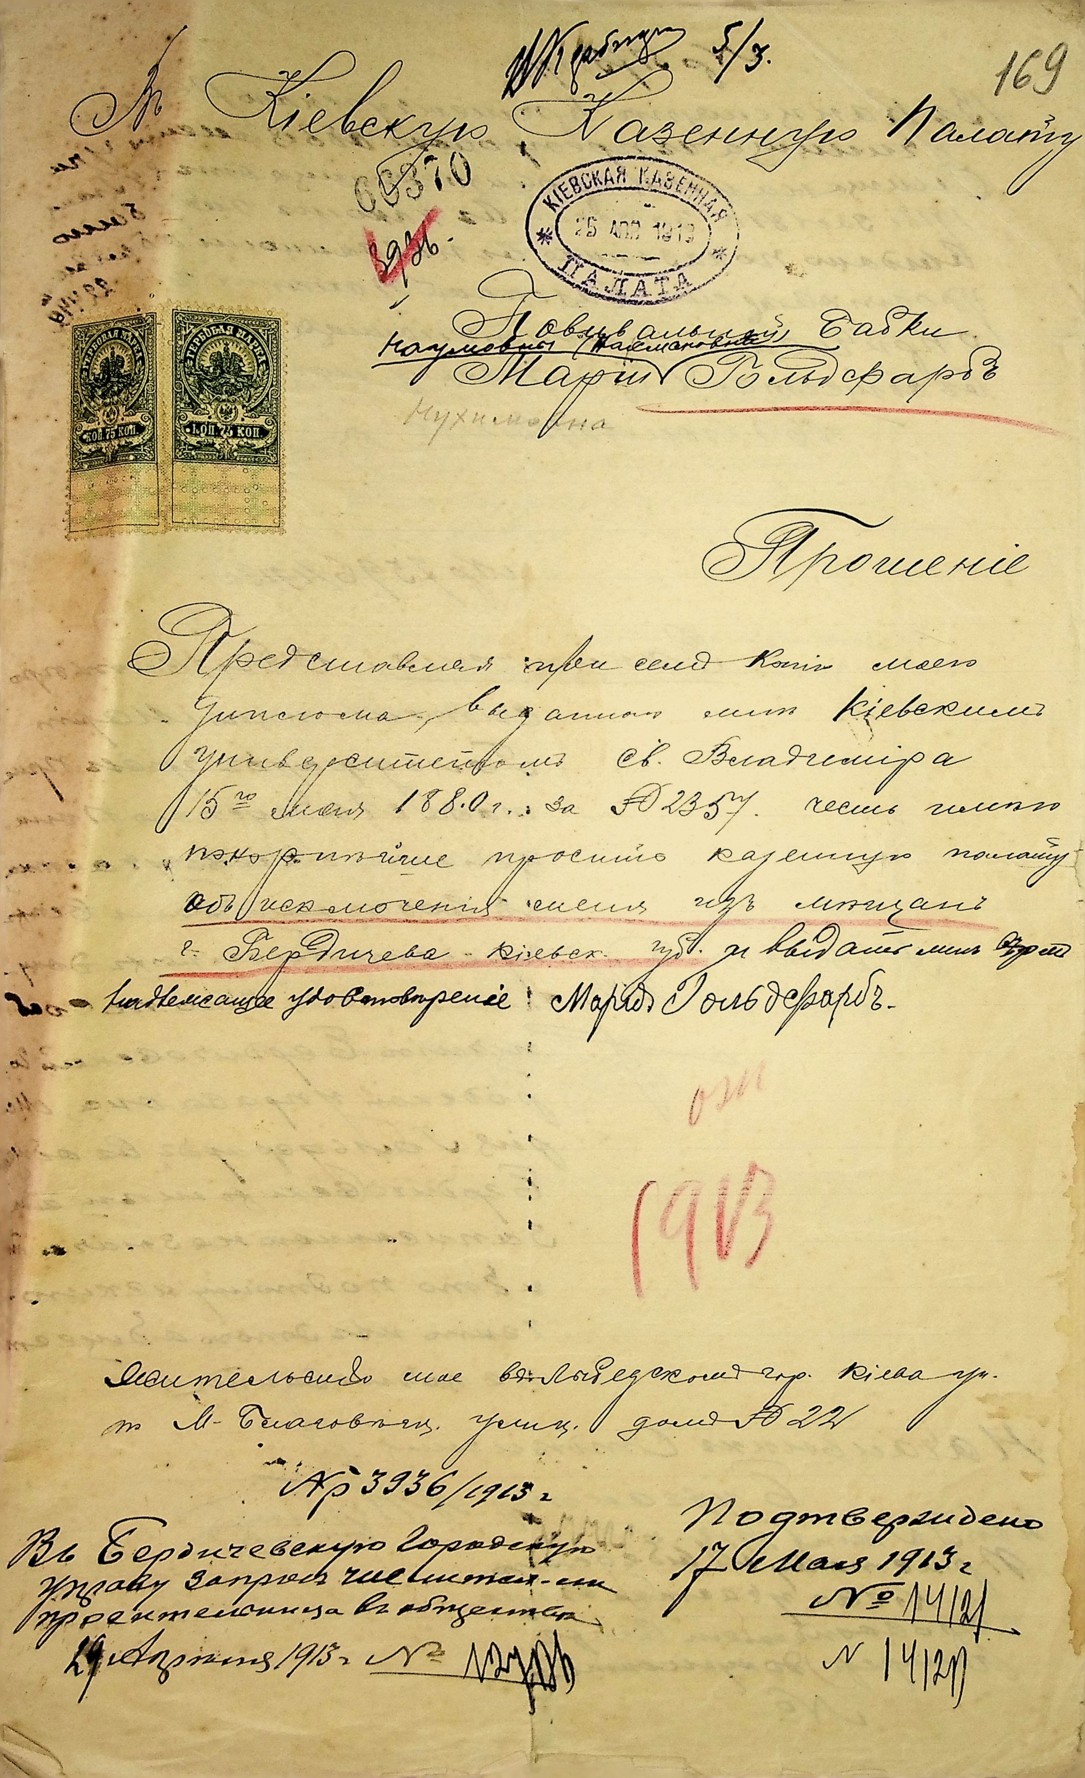 5/3.
169
Въ Кіевскую Казенную Палату
66370
3936.
КІЕВСКАЯ КАЗЕННАЯ
25 АПР 1913
ПАЛАТА
ГЕРБОВАЯ МАРКА
ГЕРБОВАЯ МАРКА
КОП. 75 КОП.
КОП. 75 КОП.
Повивальной Бабки
Наумовны
Маріи Гольдфарбъ
Нухимовна
Прошеніе
Представляя при семъ копію моего
диплома, выданного мнѣ Кіевскимъ
университетомъ св. Владиміра
15го мая 1880 г. за № 2357. честь имѣю
покорнѣйше просить казенную палату
объ исключеніи меня изъ мѣщанъ
г. Бердичева Кіевск. губ. и выдать мнѣ
надлежащее удостовѣреніе Марія Гольдфарбъ.
1913
Жительство мое въ Лыбедскомъ гор. Кіева уч.
М-Благовѣщ. улиц. домъ № 22
№ 3936/1913 г
Въ Бердичевскую Городскую
управу запросъ числится-ли
просительница въ обществѣ
29 Апрѣля 1913 г №
Подтверждено
17 Мая 1913 г
№ 14121
№ 14121